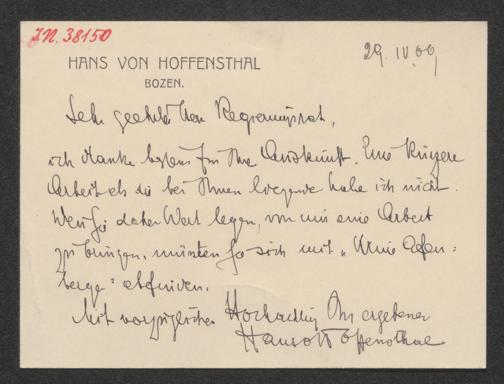 J.N. 38150
HANS VON HOFFENSTHAL
BOZEN.
29. IV. 09
Sehr geehrter Herr Regierungsrat,
ich danke bestens für Ihre Auskunft. Eine kürzere
Arbeit als die bei Ihnen liegende habe ich nicht.
Wenn Sie daher Wert legen, von mir eine Arbeit
zu bringen, müssten Sie sich mit "
berge" abfinden.
Mit vorzüglicher Hochachtung Ihr ergebener
Hans v Hoffensthal